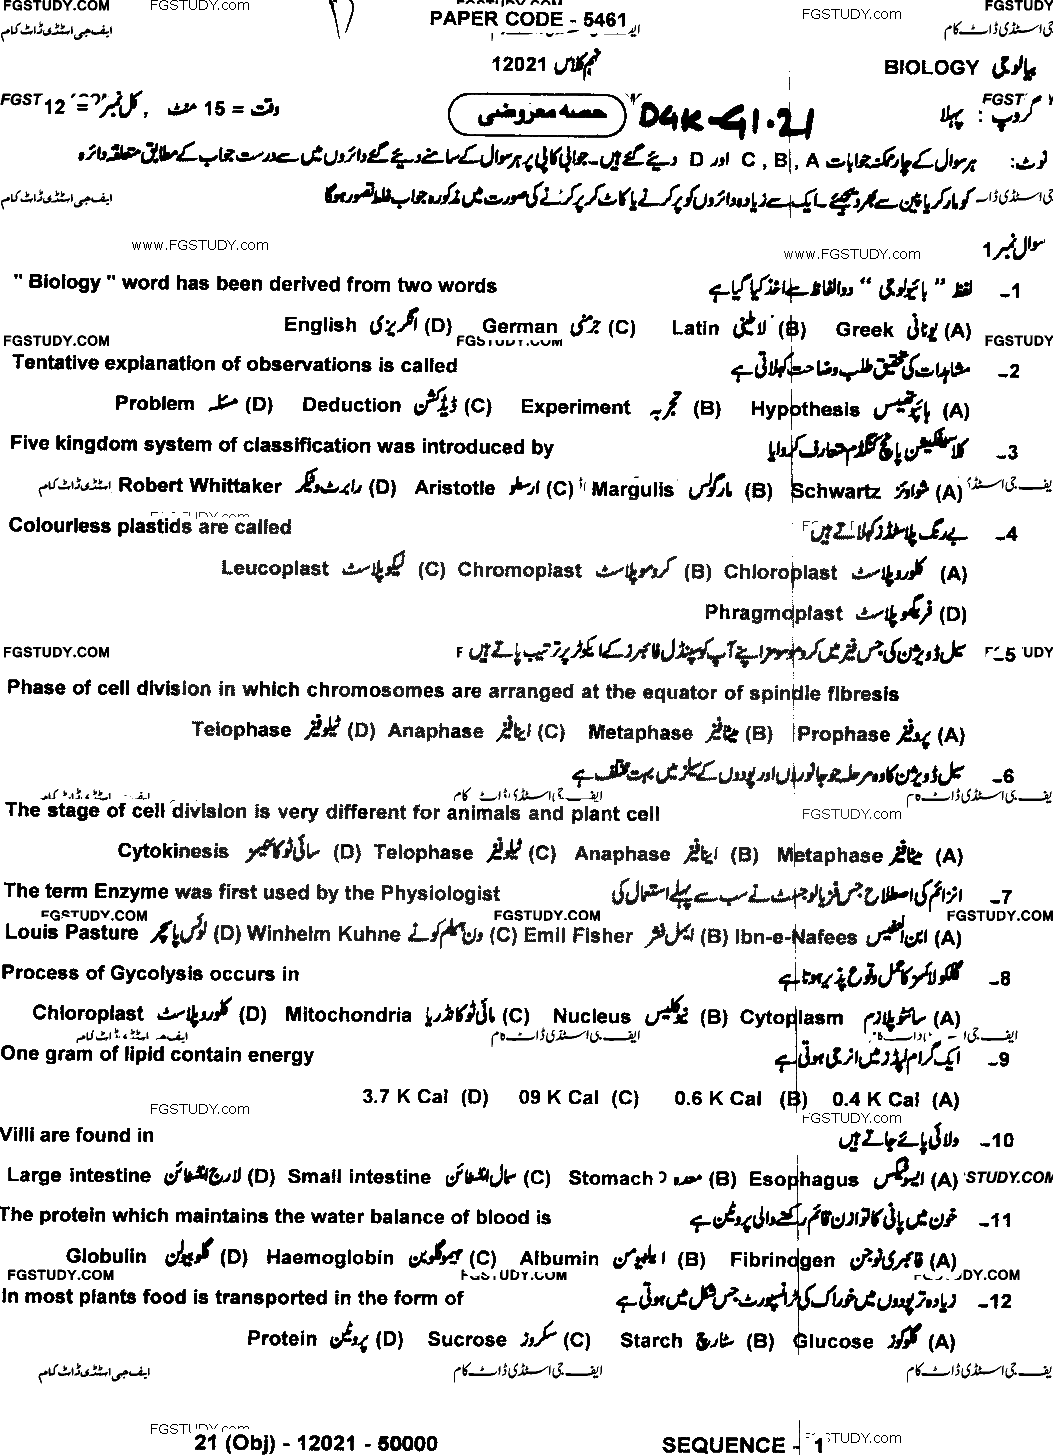 FGSTUDY.COM FGSTUDY.COM FGSTUDY.com FGSTUDY
PAPER CODE - 5461
ایف جی اسٹڈی ڈاٹ کام جی اسٹڈی ڈاٹ کام
نہم کلاس 12021 BIOLOGY بیالوجی
FGST 12 = کل نمبر ، وقت = 15 منٹ حصہ معروضی DGK-G1-21 گروپ : پہلا FGST
نوٹ: ہر سوال کے چار ممکنہ جوابات A ، B ، C اور D دیئے گئے ہیں۔ جوابی کاپی پر ہر سوال کے سامنے دیئے گئے دائروں میں سے درست جواب کے مطابق متعلقہ دائرہ
کو مارکر یا پین سے بھر دیجئے۔ ایک سے زیادہ دائروں کو پر کرنے یا کاٹ کر پر کرنے کی صورت میں مذکورہ جواب غلط تصور ہوگا
ایف جی اسٹڈی ڈاٹ کام جی اسٹڈی ڈاٹ
www.FGSTUDY.com www.FGSTUDY.com سوال نمبر 1
" Biology " word has been derived from two words لفظ " بائیولوجی " دو الفاظ سے اخذ کیا گیا ہے 1-
English انگریزی (D) German جرمنی (C) Latin لاطینی (B) Greek یونانی (A)
FGSTUDY.COM FGSTUDY.COM FGSTUDY
Tentative explanation of observations is called مشاہدات کی تحقیق طلب وضاحت کہلاتی ہے 2-
Problem مسئلہ (D) Deduction ڈیڈکشن (C) Experiment تجربہ (B) Hypothesis ہائپوتھیسس (A)
Five kingdom system of classification was introduced by کلاسیفکیشن پانچ کنگڈم متعارف کروایا 3-
ایف جی اسٹڈی ڈاٹ کام Robert Whittaker رابرٹ وٹیکر (D) Aristotle ارسطو (C) Margulis مارگولس (B) Schwartz شوارٹز (A)
FGSTUDY.com
Colourless plastids are called بے رنگ پلاسٹڈز کہلاتے ہیں 4-
Leucoplast لیکوپلاسٹ (C) Chromoplast کروموپلاسٹ (B) Chloroplast کلوروپلاسٹ (A)
Phragmoplast فریگموپلاسٹ (D)
FGSTUDY.COM سیل ڈویژن کی جس فیز میں کروموسومز اپنے آپ کو سپنڈل فائبرز کے ایکویٹر پر ترتیب پاتے ہیں 5- UDY
Phase of cell division in which chromosomes are arranged at the equator of spindle fibresis
Telophase ٹیلوفیز (D) Anaphase اینافیز (C) Metaphase میٹافیز (B) Prophase پروفیز (A)
سیل ڈویژن کا وہ مرحلہ جو جانوروں اور پودوں کے سیلز میں بہت مختلف ہے 6-
ایف جی اسٹڈی ڈاٹ کام ایف جی اسٹڈی ڈاٹ کام ایف جی اسٹڈی ڈاٹ کام
The stage of cell division is very different for animals and plant cell FGSTUDY.com
Cytokinesis سائٹوکائنیسز (D) Telophase ٹیلوفیز (C) Anaphase اینافیز (B) Metaphase میٹافیز (A)
The term Enzyme was first used by the Physiologist انزائم کی اصطلاح جس فزیالوجسٹ نے سب سے پہلے استعمال کی 7-
FGSTUDY.COM FGSTUDY.COM FGSTUDY.COM
Louis Pasture لوئس پاسچر (D) Winhelm Kuhne ون ہیلم کوہنے (C) Emil Fisher ایمل فشر (B) Ibn-e-Nafees ابن النفیس (A)
Process of Gycolysis occurs in گلائکولائسز کا عمل وقوع پذیر ہوتا ہے 8-
Chloroplast کلوروپلاسٹ (D) Mitochondria مائٹوکانڈریا (C) Nucleus نیوکلیس (B) Cytoplasm سائٹوپلازم (A)
ایف جی اسٹڈی ڈاٹ کام ایف جی اسٹڈی ڈاٹ کام
One gram of lipid contain energy ایک گرام لپڈز میں انرجی ہوتی ہے 9-
3.7 K Cal (D) 09 K Cal (C) 0.6 K Cal (B) 0.4 K Cal (A)
FGSTUDY.com FGSTUDY.com
Villi are found in ولائی پائے جاتے ہیں 10-
Large intestine لارج انٹسٹائن (D) Small intestine سمال انٹسٹائن (C) Stomach معدہ (B) Esophagus ایسوفیگس (A) STUDY.COM
The protein which maintains the water balance of blood is خون میں پانی کا توازن قائم رکھنے والی پروٹین ہے 11-
Globulin گلوبیولن (D) Haemoglobin ہیموگلوبن (C) Albumin ایلبیومن (B) Fibrinogen فائبرینوجن (A)
FGSTUDY.COM FGSTUDY.COM DY.COM
In most plants food is transported in the form of زیادہ تر پودوں میں خوراک کی ٹرانسپورٹ جس شکل میں ہوتی ہے 12-
Protein پروٹین (D) Sucrose سکروز (C) Starch سٹارچ (B) Glucose گلوکوز (A)
ایف جی اسٹڈی ڈاٹ کام ایف جی اسٹڈی ڈاٹ کام ایف جی اسٹڈی ڈاٹ کام
FGSTUDY.com
21 (Obj) - 12021 - 50000 SEQUENCE - 1 STUDY.com